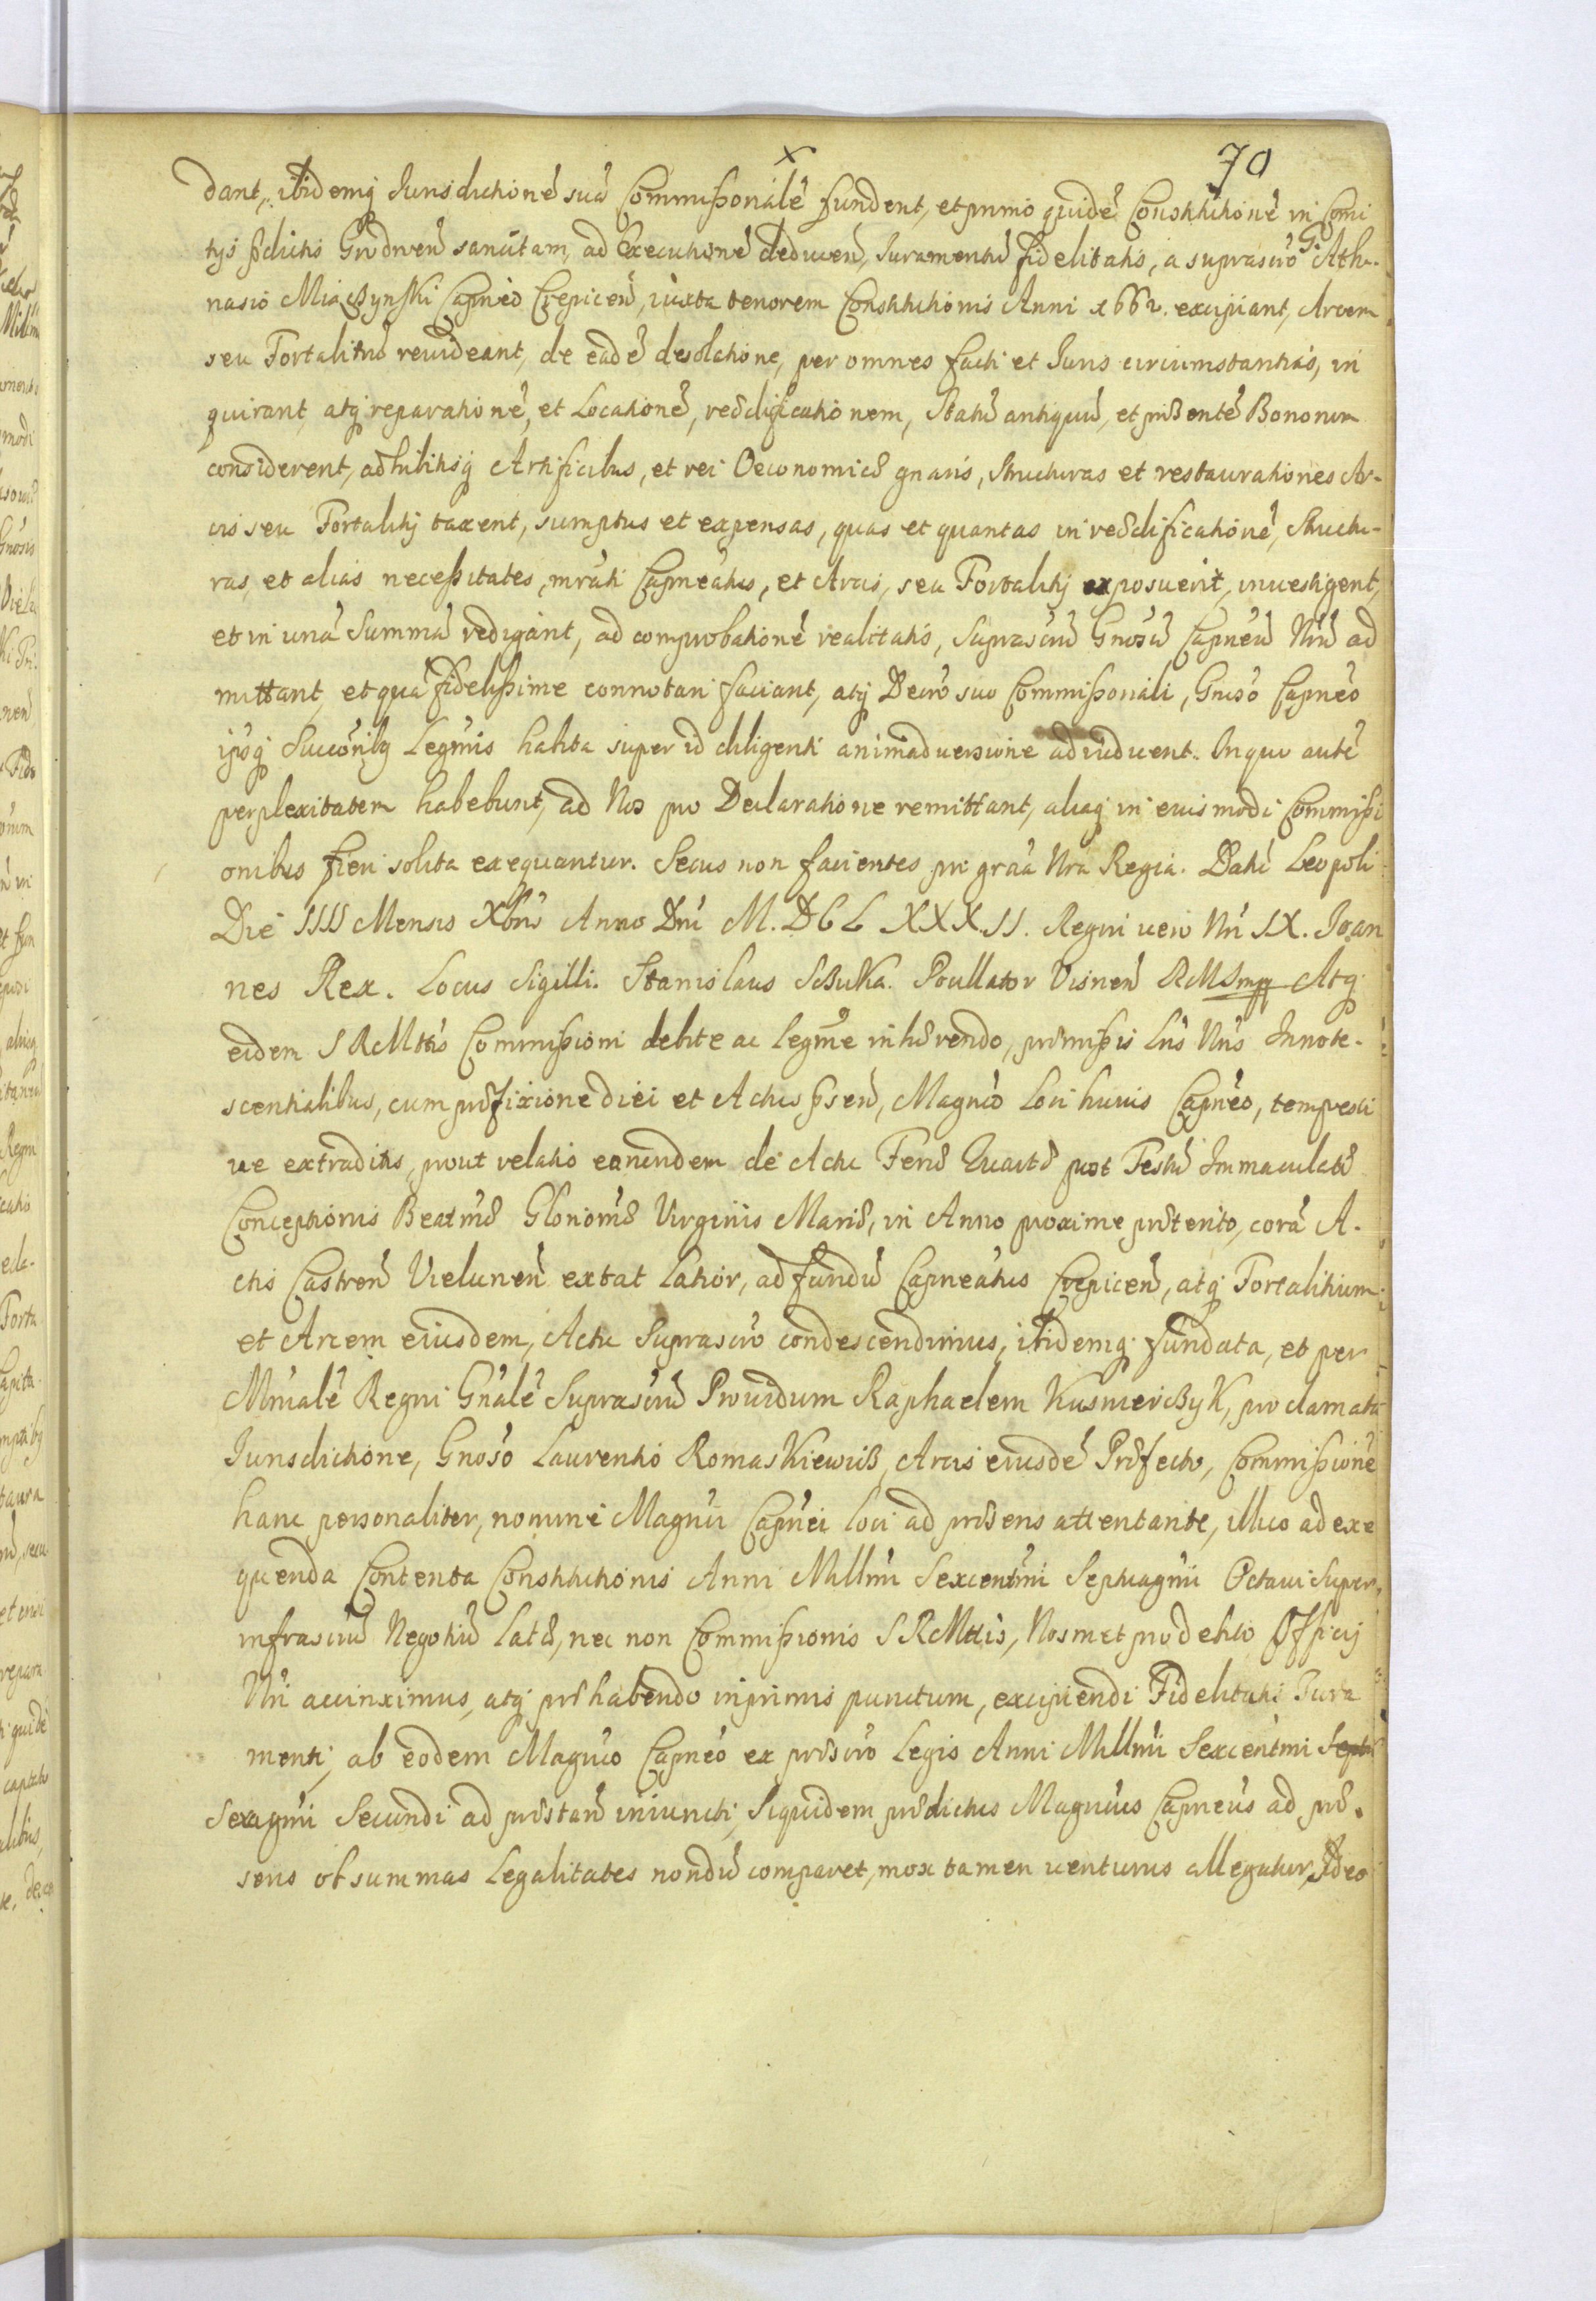 70
x
dant, ibidemq Jurisdictionē suā Commissionalē fundent, et primo quidē Constitutionē in Comi
tijs pdictis Grodnen̄ sancitam, ad Executionē deducen̄, Juramentū fidelitatis, a suprascrō G. Atha-
nasio Miączynski Capneo Crepicen̄, iuxta tenorem Constitutionis Anni 1662. excipiant, Arcem
seu Fortalitiū reuideant, de eadē desolatione, per omnes facti et Juris circumstantias, in
quirant, atq reparationē, et Locationē, reædificationem, Statū antiquū, et præsentē Bonorum
considerent, adhibitisq Artificibus, et rei Oeconomicæ gnaris, Structuras et restaurationes Ar-
cis seu Fortalitij taxent, sumptus et expensas, quas et quantas in reædificationē, Structu-
ras, et alias necessitates, mrāti Capneatus, et Arcis, seu Fortalitij exposuerit, inuestigent,
et in unā Summā redigant, ad comprobationē realitatis, Suprascrū Gnosū Capneū Nrū ad
mittant, et quā fidelissime connotari faciant, atq Decrō suo Commissionali, Gnoso Capneo
ipsq Succorībq Legmis habita super id diligenti animaduersione adiudicent. In quo autē
perplexitatem habebunt, ad Nos pro Declaratione remittant, aliaq in eiusmodi Commissi
onibus fieri solita exequantur. Secus non facientes pro grāa Nra Regia. Datū Leopoli
Die IIII Mensis Xbris Anno Dni M. DCLXXX.II. Regni uero Nri IX. Joan
nes Rex. Locus Sigilli. Stanislaus Szczuka. Pocillator Visnen̄ RMSmpp Atq
eidem SRMttis Commissioni debite ac legme inhærendo, præmissis Lris Nris Innote-
scentialibus, cum præfixione diei et Actus pnsen̄, Magnco Loci huius Capneo, tempesti
ue extraditis, prout relatio earundem de Actu Feriæ Quartæ post Festū Immaculatæ
Conceptionis Beatmæ Gloriomæ Virginis Mariæ, in Anno proxime præterito, corā A-
ctis Castren̄ Vielunen̄ extat latior, ad fundū Capneatus Crepicen̄, atq Fortalitium
et Arcem eiusdem, Actu Suprascrō condescendimus, ibidemq fundata, et per
Mrialē Regni Gnalē Suprascrū Prouidum Raphaelem Kusmierczyk, proclamata
Jurisdictione, Gnoso Laurentio Romaskiewicz, Arcis eiusdē Præfecto, Commissionē
hanc personaliter, nomine Magnci Capnei loci ad præsens attentante, illico ad exe
quenda Contenta Constitutionis Anni Millmi Sexcentmi Septuagmi Octaui Super,
infrascrū Negotiū latæ, nec non Commissionis SRMttis, Nosmet pro debito Officij
Nri accinximus, atq præhabendo inprimis punctum, excipiendi Fidelitatis Jura
menti, ab eodem Magnco Capneo ex præscrō Legis Anni Millmi Sexcentmi Septu
Sexagmi Secundi ad præstan̄ iniuncti, Siquidem prædictus Magncus Capneus ad præ-
sens ob summas Legalitates nondū comparet, mox tamen uenturus allegatur, Ideo